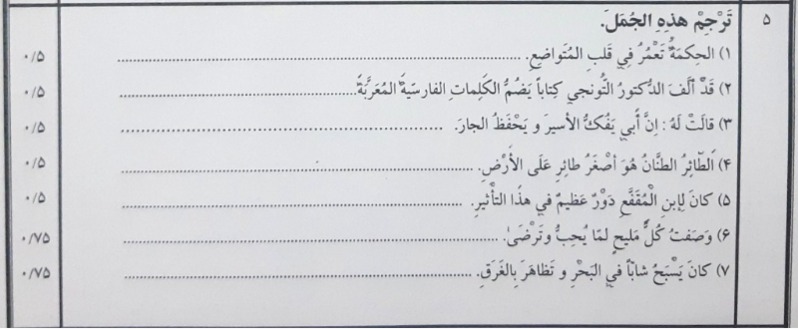 ۵ تَرْجِمْ هذِهِ الجُمَلَ.
۱) الحِكمَةُ تَعْمُرُ فِي قَلبِ المُتَواضِعِ. ........................ ۰/۵
۲) قَدْ أَلَّفَ الدُّكتورُ التُّونجي كِتاباً يَضُمُّ الكَلِماتِ الفارسّيةَ المُعَرَّبَةَ........................ ۰/۵
۳) قالَتْ لَهُ : اِنَّ أَبي يَفُكُّ الأسيرَ و يَحْفَظُ الجارَ. ........................ ۰/۵
۴) اَلطّائِرُ الطَّنَّانُ هُوَ أصْغَرُ طائِرٍ عَلَى الأَرْضِ. ........................ ۰/۵
۵) كانَ لِابنِ الْمُقَفَّعِ دَوْرٌ عَظيمٌ في هذَا التأثيرِ. ........................ ۰/۵
۶) وَصَفتُ كُلَّ مَليحٍ لمَا يُحِبُّ وتَرْضَىٰ. ........................ ۰/۷۵
۷) كانَ يَسْبَحُ شابّاً في البَحْرِ و تَظاهَرَ بِالغَرَقِ. ........................ ۰/۷۵